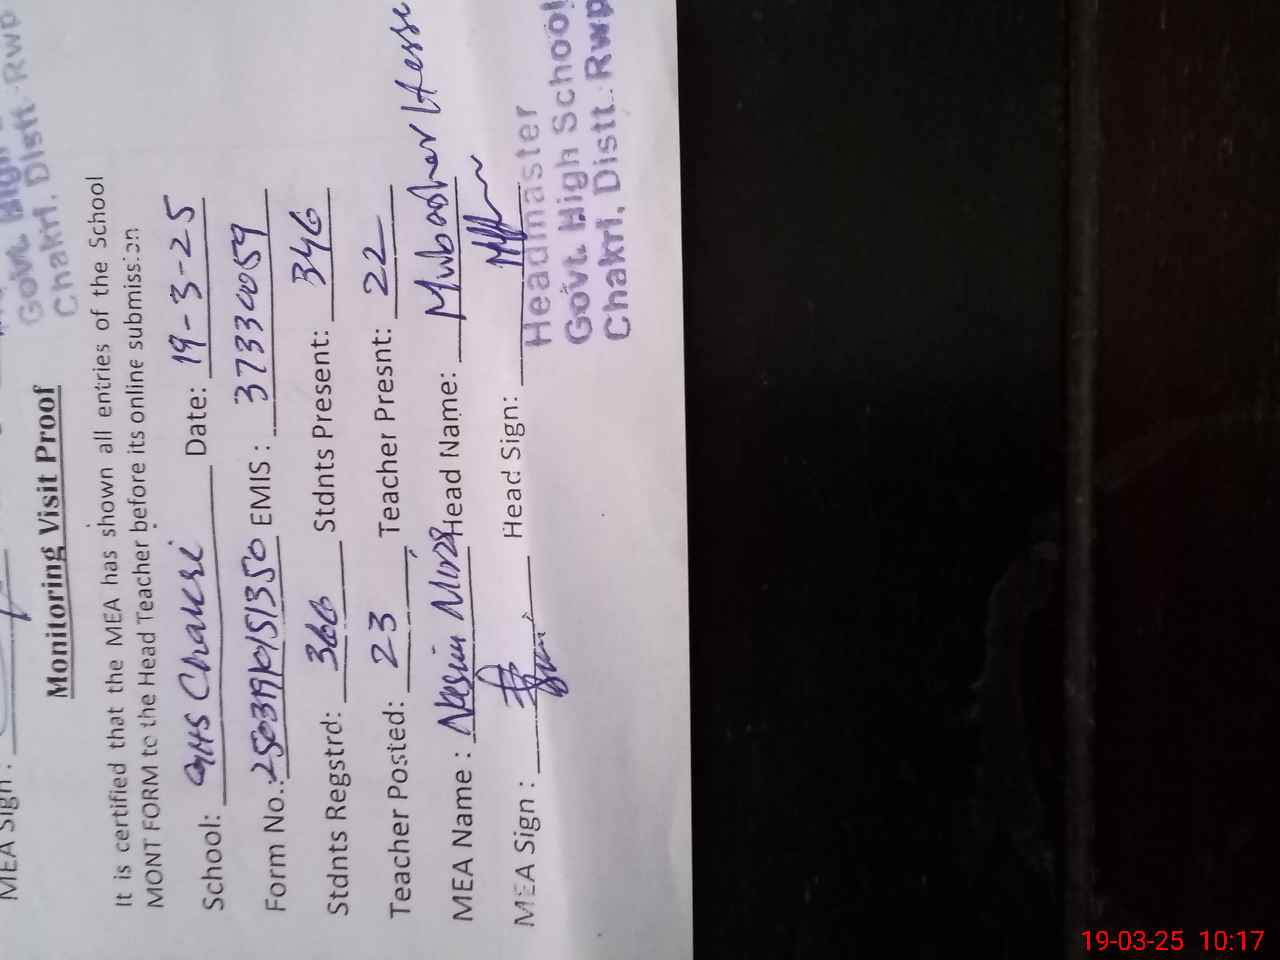 MEA Sign :
Govt. High
Chakri, Distt. Rwp
Monitoring Visit Proof
It is certified that the MEA has shown all entries of the School
MONT FORM to the Head Teacher before its online submission
School: GHS Chakri Date: 19-3-25
Form No.: EMIS : 37330059
Stdnts Regstrd: 366 Stdnts Present: 346
Teacher Posted: 23 Teacher Presnt: 22
MEA Name : Head Name: Mubasher
MEA Sign : Head Sign:
Headmaster
Govt. High School
Chakri, Distt. Rwp
19-03-25 10:17